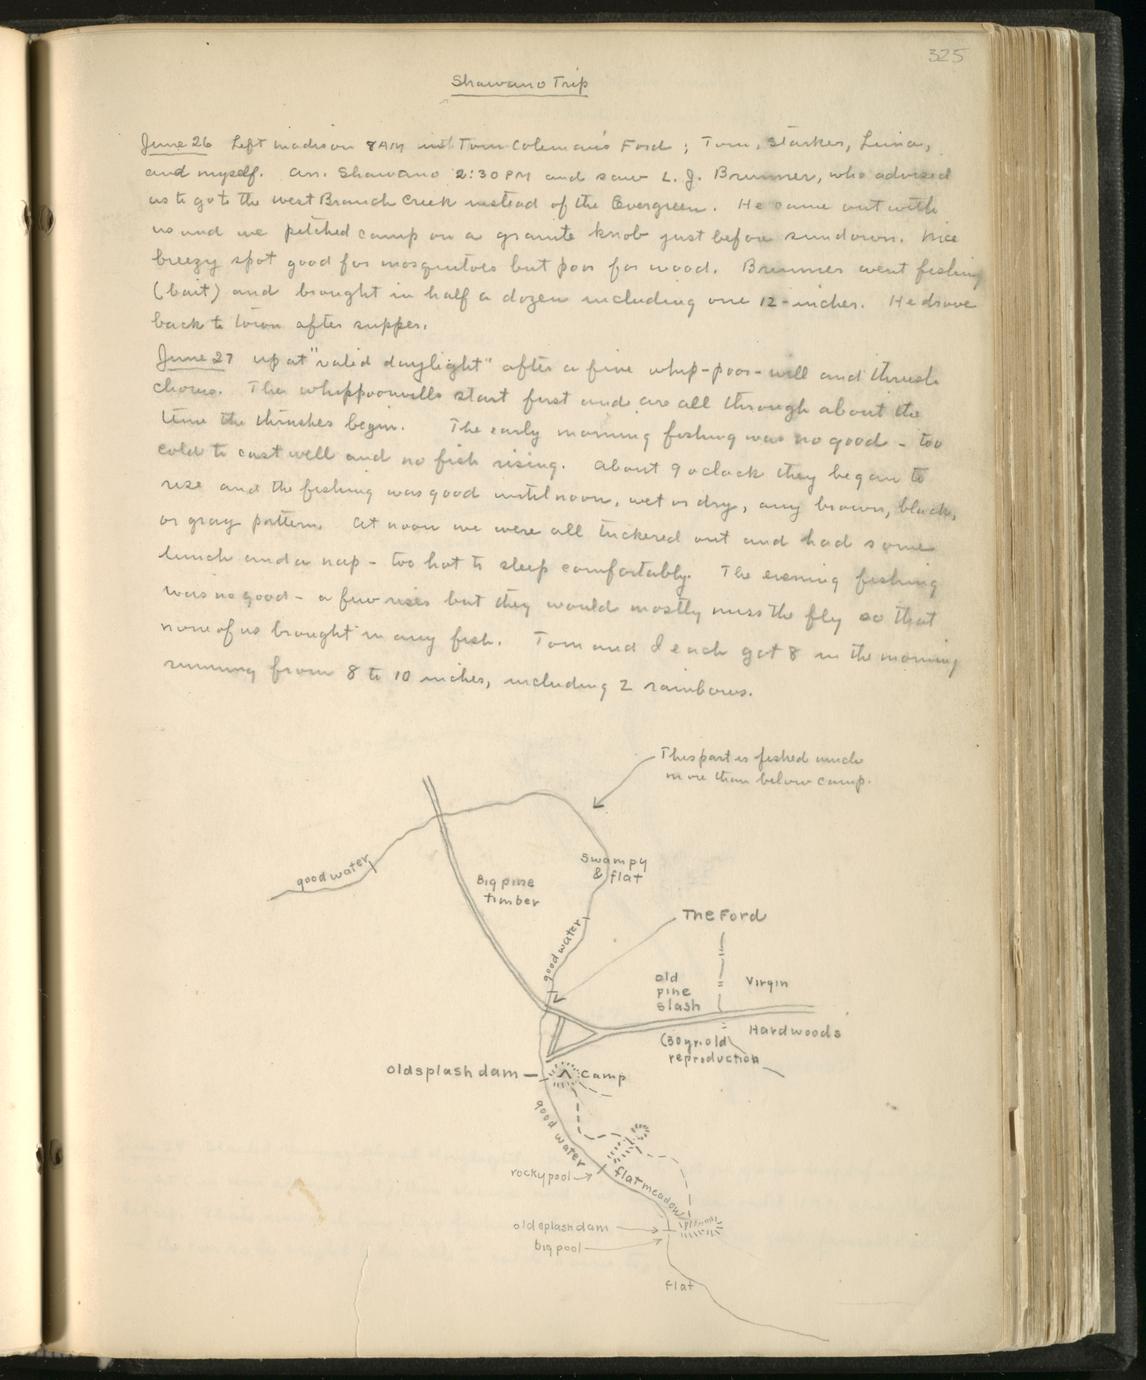 325
Shawano Trip
June 26 Left Madison 8 AM in Tom Coleman's Ford; Tom, Starker, Luna,
and myself. Arr. Shawano 2:30 PM and saw L. J. Brunner, who advised
us to go to the West Branch Creek instead of the Evergreen. He came out with
us and we pitched camp on a granite knob just before sundown. Nice
breezy spot good for mosquitoes but poor for wood. Brunner went fishing
(bait) and brought in half a dozen including one 12-incher. He drove
back to town after supper.
June 27 up at "valid daylight" after a fine whip-poor-will and thrush
chorus. The whippoorwills start first and are all through about the
time the thrushes begin. The early morning fishing was no good - too
cold to cast well and no fish rising. About 9 oclock they began to
rise and the fishing was good until noon, wet or dry, any brown, black,
or gray pattern. At noon we were all tuckered out and had some
lunch and a nap - too hot to sleep comfortably. The evening fishing
was no good - a few rises but they would mostly miss the fly so that
none of us brought in any fish. Tom and I each got 8 in the morning
running from 8 to 10 inches, including 2 rainbows.
This part is fished much
more than below camp.
good water
Big pine
timber
Swampy
& flat
good water
The Ford
old
pine
slash
Virgin
Hardwoods
(30 yr. old
reproduction
old splash dam
Camp
good water
rocky pool
flat meadow
old splash dam
big pool
flat